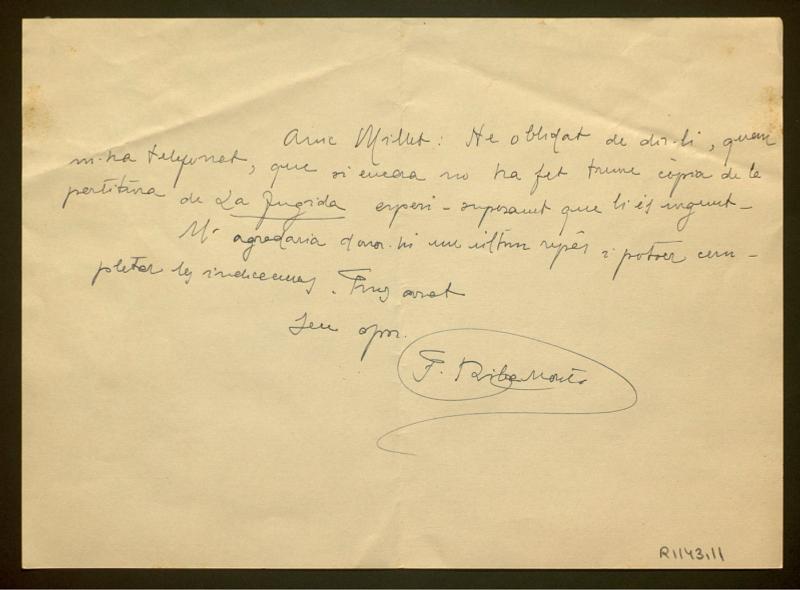 Amic Millet: He oblidat de dir-li, quan
m-ha telefonat, que si encara no ha fet treure còpia de la
partitura de La Fugida esperi - suposant que li és urgent -
M' agradaria donar-hi un últim repàs i potser com-
pletar les indicacions. Fins aviat
Seu afm.
F. Ribas Montó
R.1143.11